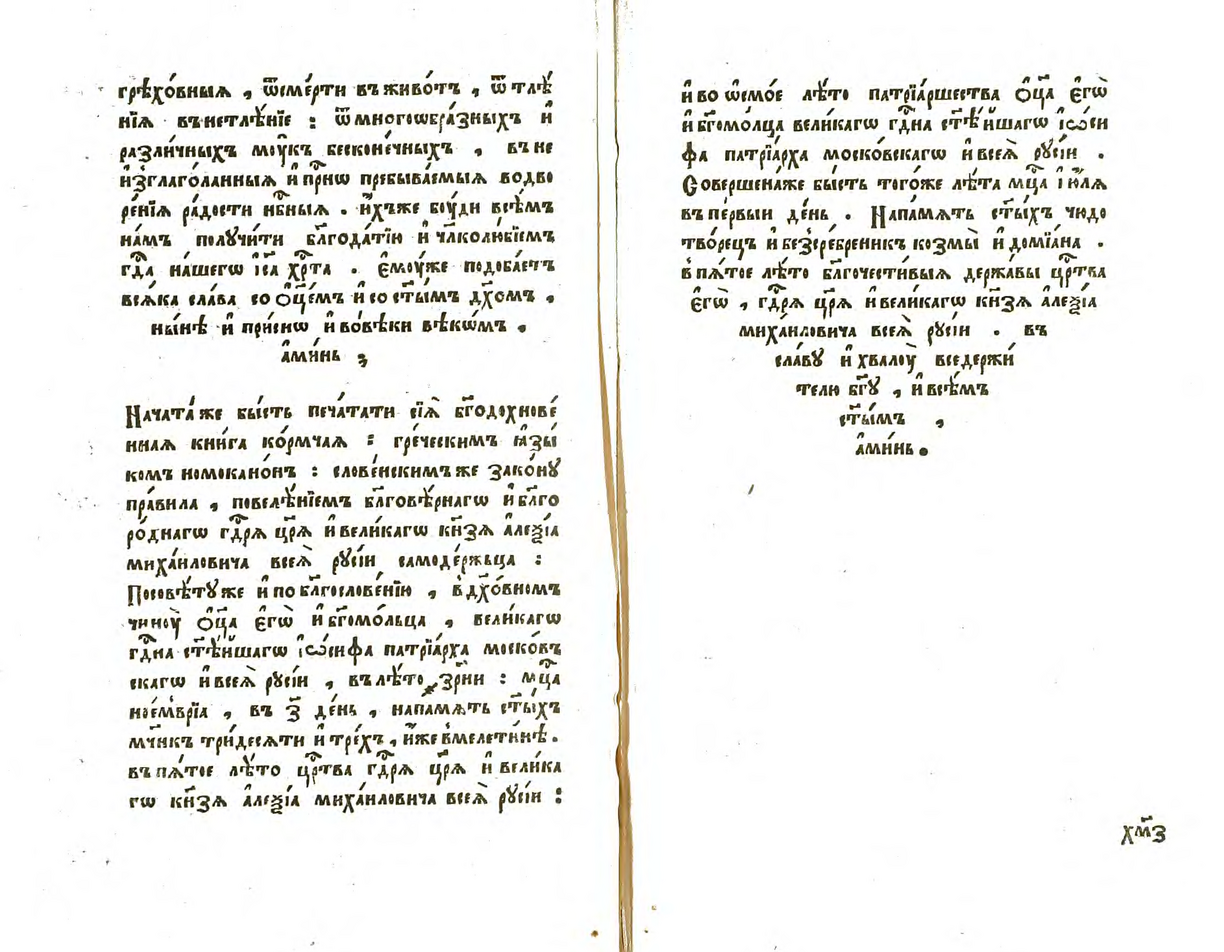 грѣхо́вныѧ , ѿсме́рти въживо́тъ , ѿ тлѣ́
нїѧ въистлѣ́нїе : ѿмногоѡбра́зныхъ и҆
разли́чныхъ мо́укъ бесконе́чныхъ , въне
и҆зглаго́ланныѧ и҆ при́нѡ пребыва́емыѧ водво
ре́нїѧ ра́дости нб҃ныѧ . и҆́хъже бо́уди всѣ́мъ
на́мъ полꙋчи́ти блг҃ода́тїю и҆ чл҃колю́бїемъ
гдⷭ҇а на́шегѡ і҆с҃а хрⷭ҇та . є҆мо́уже подоба́етъ
всѧ́ка сла́ва со ѻ҆ц҃е́мъ и҆ со ст҃ы́мъ дх҃омъ ,
ны́нѣ и҆ при́снѡ и҆ во́вѣки вѣкѡ́мъ .
а҆ми́нь ;
Нача́та же бы́сть печа́тати сїѧ̀ бг҃одохнове́
ннаѧ кни́га ко́рмчаѧ : гре́ческимъ ꙗ҆зы́
комъ номокано́нъ : слове́нскимъже зако́нꙋ
пра́вила , повелѣ́нїемъ бл҃говѣ́рнагѡ и҆ бл҃го
ро́днагѡ гдⷭ҇рѧ цр҃ѧ̀ и҆ вели́кагѡ кн҃зѧ а҆леѯі́а
миха́иловича всеѧ̀ рꙋсі́и самоде́ржьца :
Посовѣ́тꙋ же и҆ по бл҃гослове́нїю , в дх҃о́вномъ
чино́у ѻ҆ц҃а̀ є҆гѡ̀ и҆ бг҃омо́льца , вели́кагѡ
гдⷭ҇на ст҃ѣ́ишагѡ і҆ѡ́сифа патрїа́рха моско́въ
скагѡ и҆ всеѧ̀ рꙋсі́и , въ лѣ́то ҂зр҃ни : мцⷭ҇а
ное́мврїа , въ з҃ де́нь , на па́мѧть ст҃ы́хъ
мч҃нкъ три́десѧти и҆ тре́хъ , и҆́же в мелети́нѣ .
въ пѧ́тое лѣ́то црⷭ҇тва гдⷭ҇рѧ цр҃ѧ̀ и҆ вели́ка
гѡ кн҃зѧ а҆леѯі́а миха́иловича всеѧ̀ рꙋсі́и :
и҆ во ѡ҆смо́е лѣ́то патрїа́ршества ѻ҆ц҃а̀ є҆гѡ̀
и҆ бг҃омо́лца вели́кагѡ гдⷭ҇на ст҃ѣ́ишагѡ і҆ѡ́си
фа патрїа́рха моско́вскагѡ и҆ всеѧ̀ рꙋсі́и .
Соверше́на́же бы́сть того́же лѣ́та мцⷭ҇а і҆ю́лѧ
въ пе́рвыи де́нь . На па́мѧть ст҃ы́хъ чюдо
тво́рецъ и҆ безсре́бреникъ козмы̀ и҆ домїа́на .
в пѧ́тое лѣ́то бл҃гочести́выѧ держа́вы црⷭ҇тва
є҆гѡ̀ , гдⷭ҇рѧ цр҃ѧ̀ и҆ вели́кагѡ кн҃зѧ а҆леѯі́а
миха́иловича всеѧ̀ рꙋсі́и . въ
сла́вꙋ и҆ хвало́у вседержи́
телю бг҃ꙋ , и҆ всѣ́мъ
ст҃ы́мъ ,
а҆ми́нь .
хм҃з